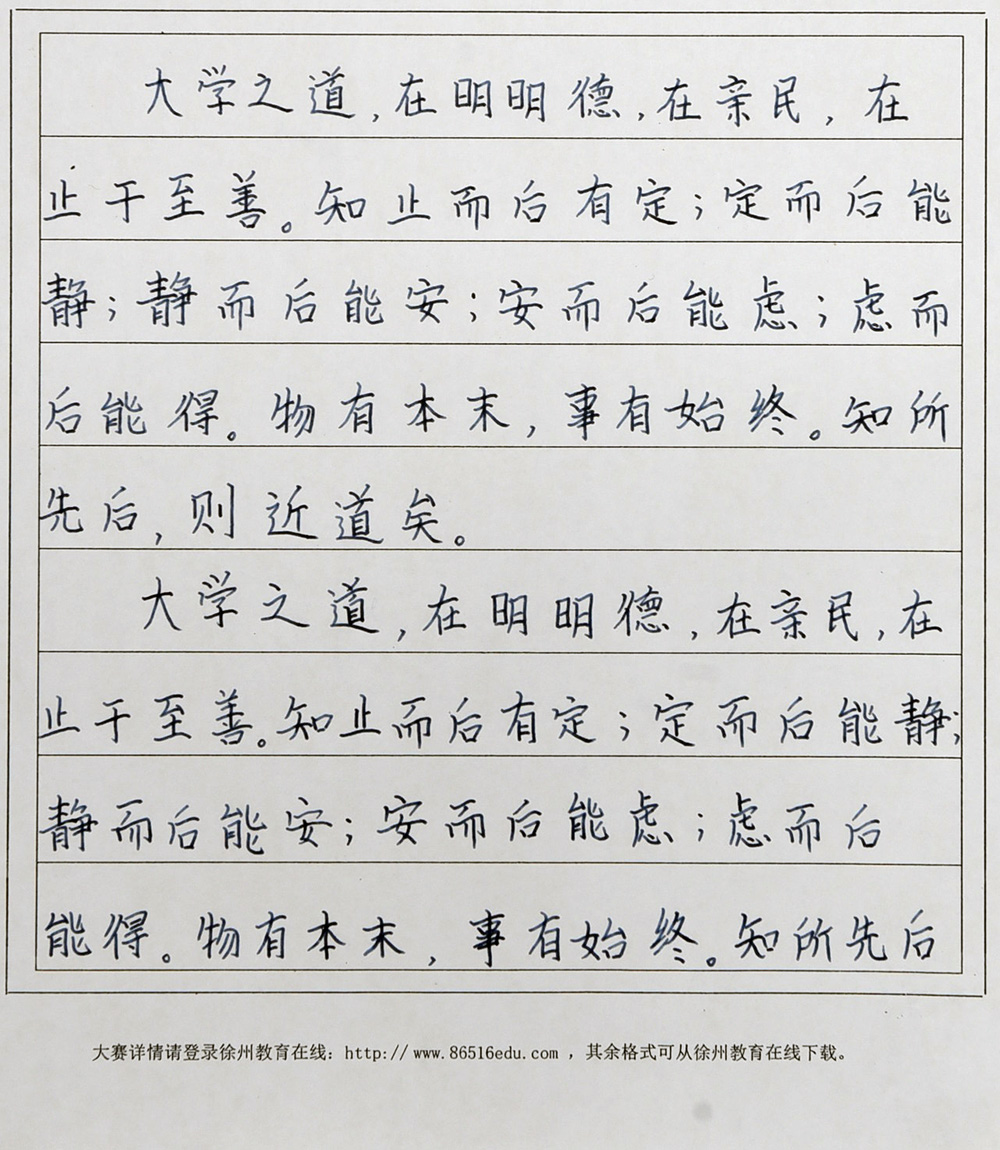 大学之道,在明明德,在亲民,在
止于至善。知止而后有定;定而后能
静;静而后能安;安而后能虑;虑而
后能得。物有本末,事有始终。知所
先后,则近道矣。
大学之道,在明明德,在亲民,在
止于至善。知止而后有定;定而后能静;
静而后能安;安而后能虑;虑而后
能得。物有本末,事有始终。知所先后
大赛详情请登录徐州教育在线: http:// www.86516edu.com ,其余格式可从徐州教育在线下载。